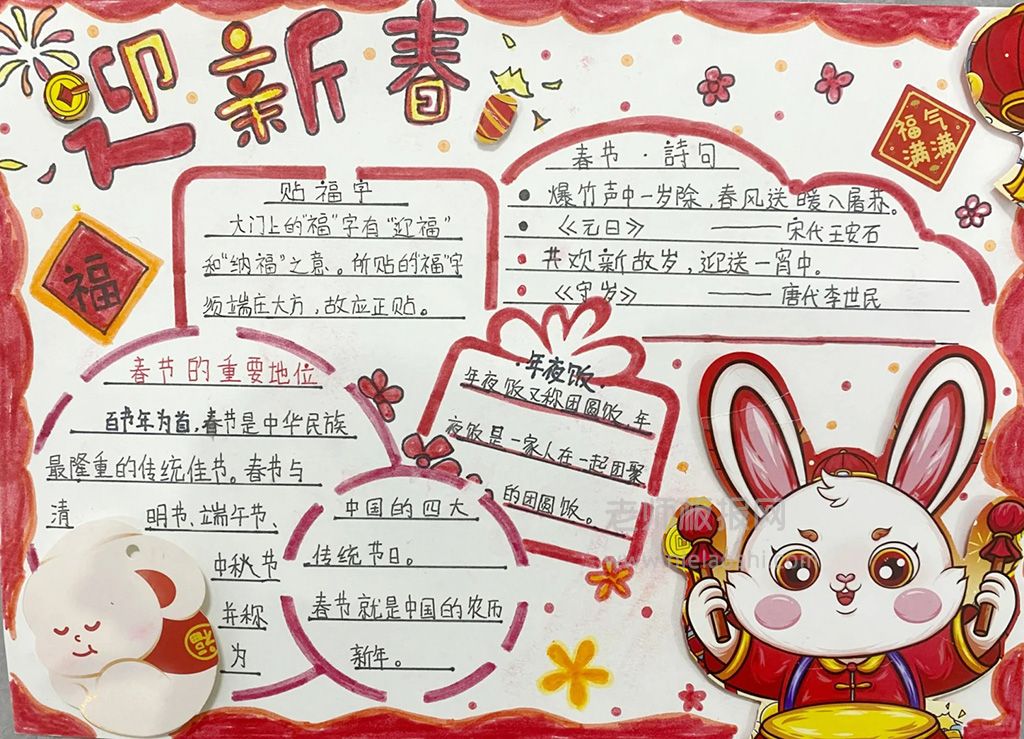 迎新春
福气
满满
福
贴福字
大门上的“福”字有“迎福”
和“纳福”之意。所贴的“福”字
须端庄大方，故应正贴。
春节·詩句
爆竹声中一岁除，春风送暖入屠苏。
《元日》 ——宋代王安石
共欢新故岁，迎送一宵中。
《守岁》 ——唐代李世民
春节的重要地位
百节年为首，春节是中华民族
最隆重的传统佳节。春节与
清 明节、端午节、
中秋节
并称
为
中国的四大
传统节日。
春节就是中国的农历
新年。
年夜饭
年夜饭又称团圆饭，年
夜饭是一家人在一起团聚
的团圆饭。
福
老师板报网